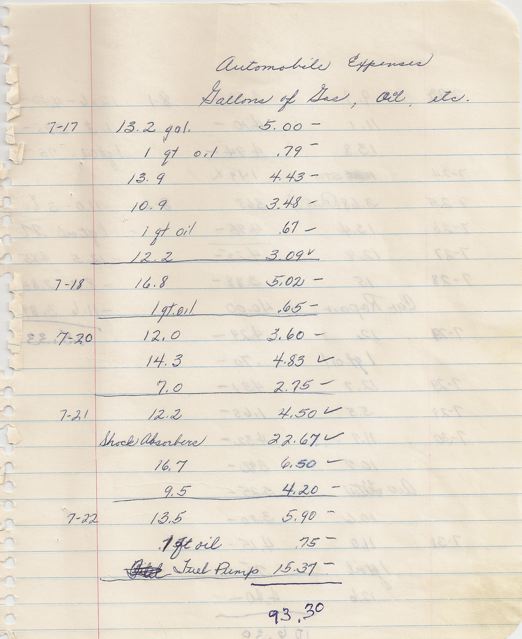 Automobile Expenses
Gallons of Gas, Oil, etc.
7-17 13.2 gal. 5.00 -
1 qt oil .79 -
13.9 4.43 -
10.9 3.48 -
1 qt oil .67 -
12.2 3.09 ✓
7-18 16.8 5.02 -
1 qt oil .65 -
7-20 12.0 3.60 -
14.3 4.83 ✓
7.0 2.75 -
7-21 12.2 4.50 ✓
Shock Absorbers 22.67 ✓
16.7 6.50 -
9.5 4.20 -
7-22 13.5 5.90 -
1 qt oil .75 -
Fuel Pump 15.37 -
93.30